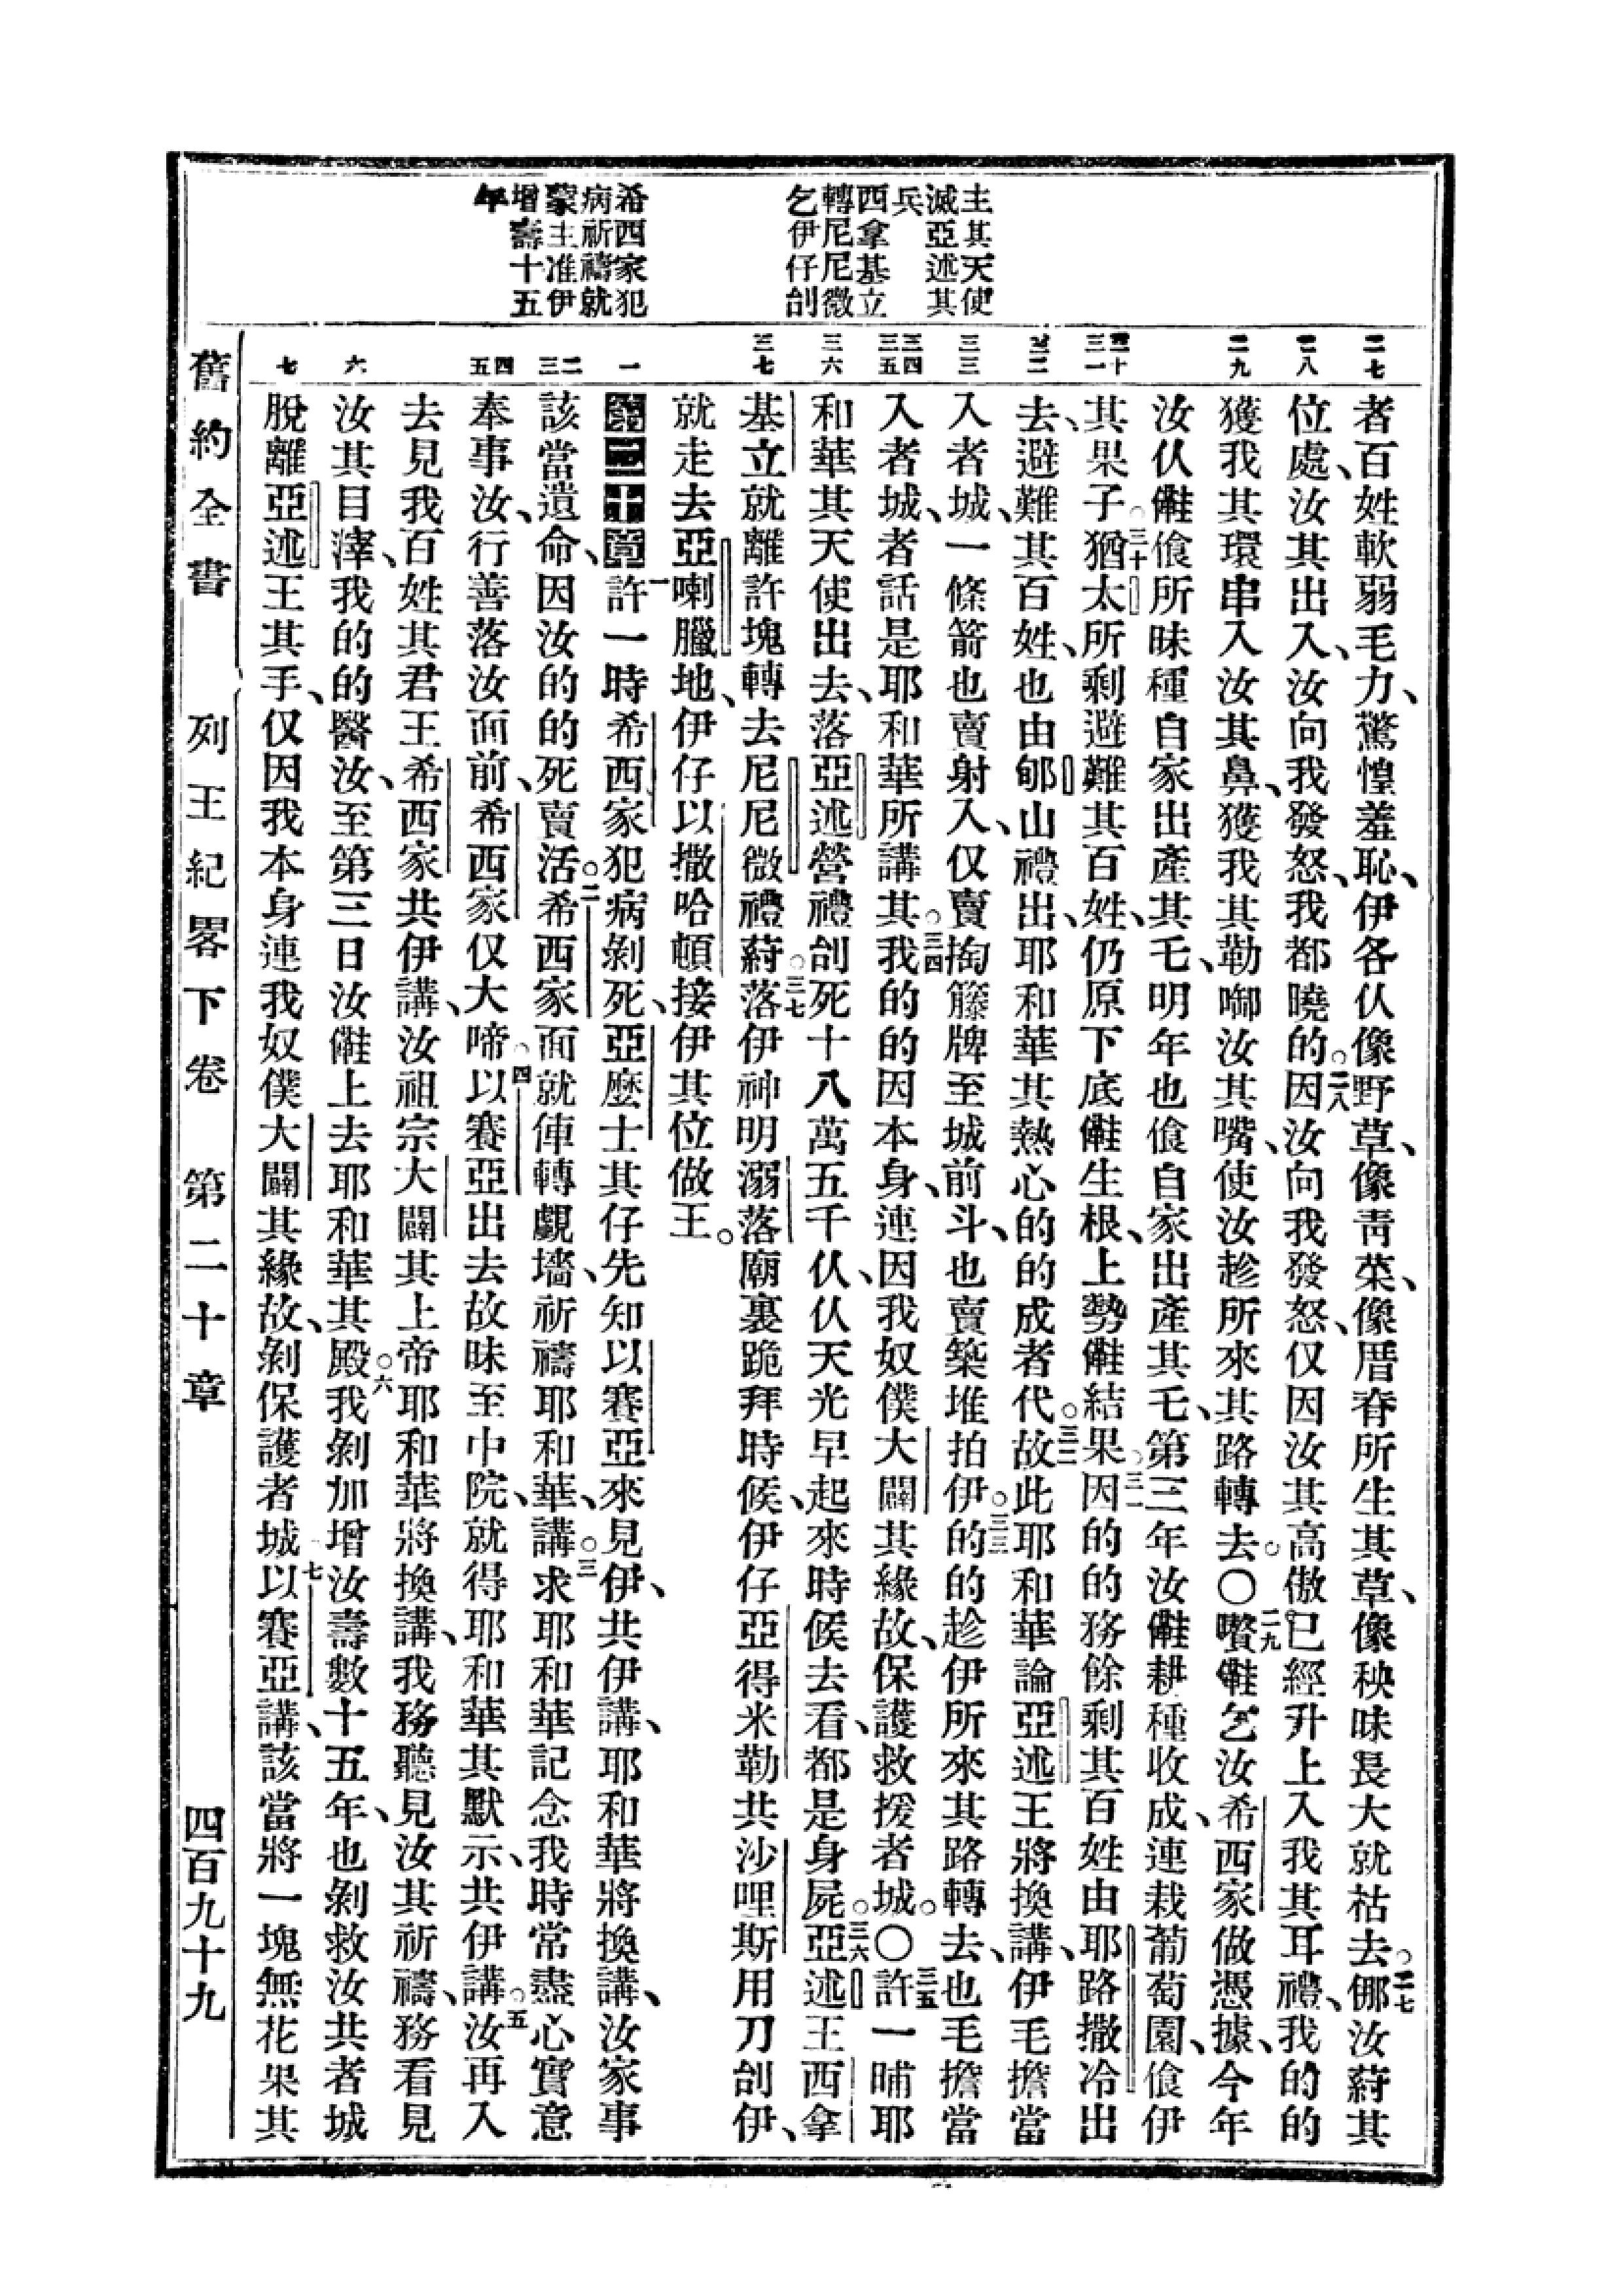 主其天使
滅亞述其
兵
西拿基立
轉尼尼微
乞伊仔刣
希西家犯
病祈禱就
蒙主准伊
增壽十五
年
者百姓軟弱毛力、驚惶羞恥、伊各仈像野草、像靑菜、像厝脊所生其草、像秧昧長大就枯去。二七㑚汝蒔其
位處、汝其出入、汝向我發怒、我都曉的。二八因汝向我發怒、仅因汝其高傲已經升上入我其耳禮、我的的
獲我其環串入汝其鼻、獲我其勒啣汝其嘴、使汝趁所來其路轉去。〇二九嚽㒰乞汝希西家做憑據、今年
汝仈㒰飧所昧種自家出產其乇、明年也飧自家出產其乇、第三年汝㒰耕種收成、連栽葡萄園、飧伊
其果子。三十猶太所剩避難其百姓、仍原下底㒰生根、上勢㒰結果。三一因的的務餘剩其百姓由耶路撒冷出
去、避難其百姓、也由郇山禮出、耶和華其熱心的的成者代。三二故此耶和華論亞述王將換講、伊毛擔當
入者城、一條箭也賣射入、仅賣搊籐牌至城前、斗、也賣築堆拍伊。三三的的趁伊所來其路轉去、也毛擔當
入者城、者話是耶和華所講其。三四我的的因本身、連因我奴僕大闢其緣故、保護救援者城。〇三五許一晡耶
和華其天使出去、落亞述營禮刣死十八萬五千仈、仈天光早起來時候去看、都是身屍。三六亞述王西拿
基立就離許塊轉去尼尼微禮蒔。三七落伊神明溺落廟裏跪拜時候、伊仔亞得米勒共沙哩斯用刀刣伊、
就走去亞喇臘地、伊仔以撒哈頓接伊其位做王。
第二十章 一許一時希西家犯病剝死、亞麼士其仔先知以賽亞來見伊、共伊講、耶和華將換講、汝家事
該當遺命、因汝的的死賣活。二希西家面就俥轉覷墻、祈禱耶和華、講。三求耶和華記念我時常盡心實意
奉事汝、行善落汝面前、希西家仅大啼。四以賽亞出去故昧至中院、就得耶和華其默示、共伊講。五汝再入
去見我百姓其君王希西家共伊講、汝祖宗大闢其上帝耶和華將換講、我務聽見汝其祈禱、務看見
汝其目滓、我的的醫汝、至第三日汝㒰上去耶和華其殿。六我剝加增汝壽數十五年、也剝救汝共者城
脫離亞述王其手、仅因我本身連我奴僕大闢其緣故、剝保護者城。七以賽亞講、該當將一塊無花果其
舊約全書 列王紀畧下卷 第二十章 四百九十九